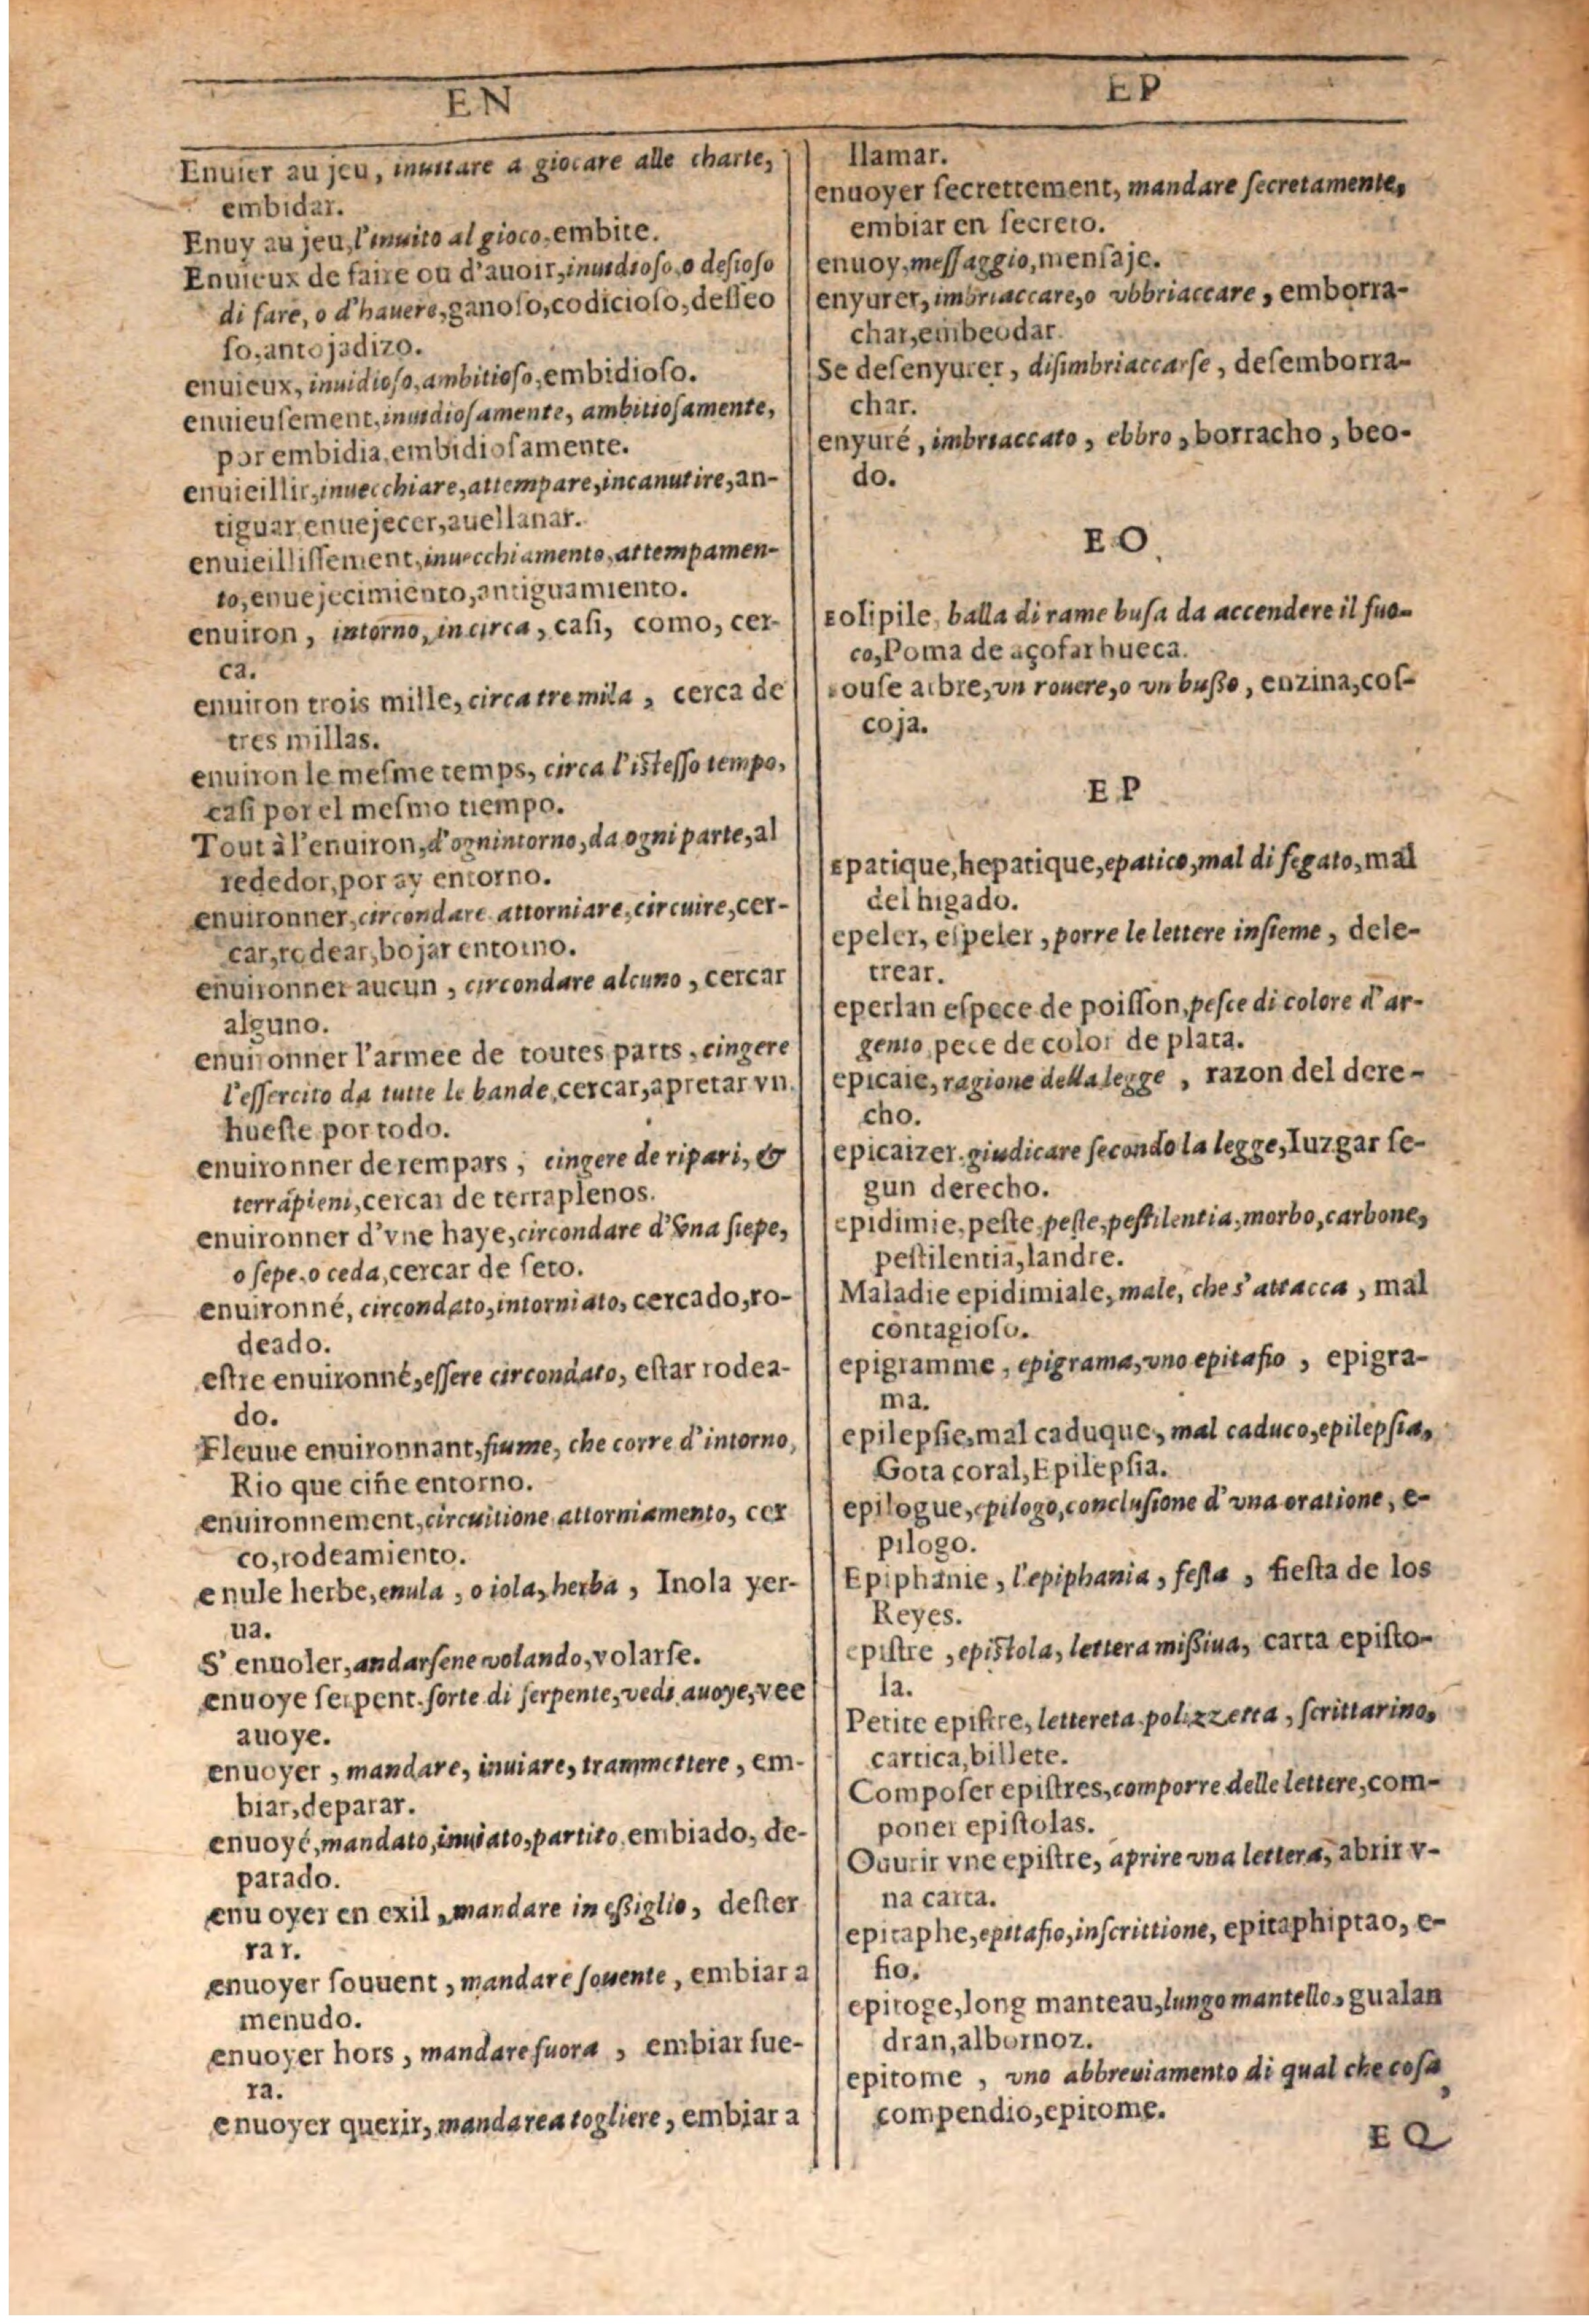 EN
Enuier au jeu, inuitare a giocare alle charte,
embidar.
Enuy au jeu, l'inuito al gioco, embite.
Enuieux de faire ou d'auoir, inuidioso, o desioso
di fare, o d'hauere, ganoſo, codicioſo, deſſeo
ſo, antojadizo.
enuieux, inuidioſo, ambitioſo, embidioſo.
enuieuſement, inuidioſamente, ambitioſamente,
por embidia, embidioſamente.
enuieillir, inuecchiare, attempare, incanutire, an-
tiguar, enuejecer, auellanar.
enuieilliſſement, inuecchiamento, attempamen-
to, enuejecimiento, antiguamiento.
enuiron, intorno, in circa, caſi, como, cer-
ca.
enuiron trois mille, circa tre mila, cerca de
tres millas.
enuiron le meſme temps, circa l'isteſſo tempo,
caſi por el meſmo tiempo.
Tout à l'enuiron, d'ognintorno, da ogni parte, al
rededor, por ay entorno.
enuironner, circondare attorniare, circuire, cer-
car, rodear, bojar entorno.
enuironner aucun, circondare alcuno, cercar
alguno.
enuironner l'armee de toutes parts, cingere
l'eſſercito da tutte le bande, cercar, apretar vn
hueſte por todo.
enuironner de rempars, cingere de ripari, &
terrapieni, cercar de terraplenos.
enuironner d'vne haye, circondare d'vna ſiepe,
o ſepe, o ceda, cercar de ſeto.
enuironné, circondato, intorniato, cercado, ro-
deado.
eſtre enuironné, eſſere circondato, eſtar rodea-
do.
Fleuue enuironnant, fiume, che corre d'intorno,
Rio que ciñe entorno.
enuironnement, circuitione attorniamento, cer
co, rodeamiento.
enule herbe, enula, o iola, herba, Inola yer-
ua.
S'enuoler, andarſene volando, volarſe.
enuoye ſerpent. ſorte di ſerpente, vedi auoye, vee
auoye.
enuoyer, mandare, inuiare, trammettere, em-
biar, deparar.
enuoyé, mandato, inuiato, partito, embiado, de-
parado.
enuoyer en exil, mandare in eſſiglio, deſter
rar.
enuoyer ſouuent, mandare ſouente, embiar a
menudo.
enuoyer hors, mandare fuora, embiar fue-
ra.
enuoyer querir, mandare a togliere, embiar a
EP
llamar.
enuoyer ſecrettement, mandare ſecretamente,
embiar en ſecreto.
enuoy, meſſaggio, menſaje.
enyurer, imbriaccare, o vbbriaccare, emborra-
char, embeodar.
Se deſenyurer, diſimbriaccarſe, deſemborra-
char.
enyuré, imbriaccato, ebbro, borracho, beo-
do.
EO.
Eolipile, balla di rame buſa da accendere il fuo-
co, Poma de açofar hueca.
eouſe arbre, vn rouere, o vn buſſo, enzina, coſ-
coja.
EP
Epatique, hepatique, epatico, mal di fegato, mal
del higado.
epeler, eſpeler, porre le lettere inſieme, dele-
trear.
eperlan eſpece de poiſſon, peſce di colore d'ar-
gento, pece de color de plata.
epicaie, ragione della legge, razon del dere-
cho.
epicaizer, giudicare ſecondo la legge, Iuzgar ſe-
gun derecho.
epidimie, peſte, peſte, peſtilentia, morbo, carbone,
peſtilentia, landre.
Maladie epidimiale, male, che s'attacca, mal
contagioſo.
epigramme, epigrama, vno epitafio, epigra-
ma.
epilepſie, mal caduque, mal caduco, epilepſia,
Gota coral, Epilepſia.
epilogue, epilogo, concluſione d'vna oratione, e-
pilogo.
Epiphanie, l'epiphania, feſta, fieſta de los
Reyes.
epiſtre, epiſtola, lettera miſſiua, carta epiſto-
la.
Petite epiſtre, lettereta polizzetta, ſcrittarino,
cartica, billete.
Compoſer epiſtres, comporre delle lettere, com-
poner epiſtolas.
Ouurir vne epiſtre, aprire vna lettera, abrir v-
na carta.
epitaphe, epitafio, inſcrittione, epitaphiptao, e-
fio.
epitoge, long manteau, lungo mantello, gualan
dran, albornoz.
epitome, vno abbreuiamento di qual che coſa,
compendio, epitome.
EQ